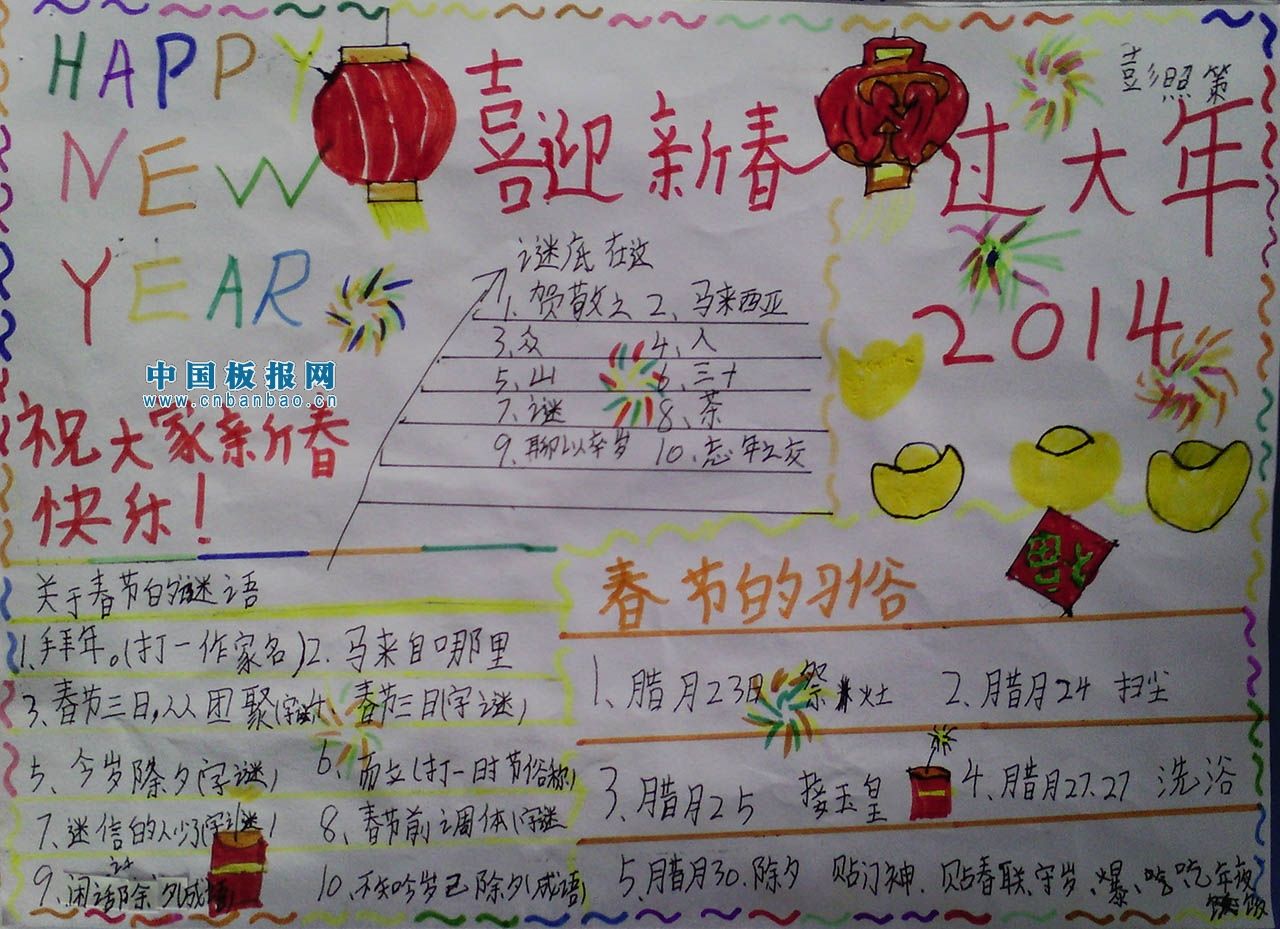 HAPPY
NEW
YEAR
喜迎新春
过大年
2014
中国板报网
www.cnbanbao.cn
祝大家新春
快乐！
谜底在这
1、贺敬之 2、马来西亚
3、众 4、人
5、山 6、三十
7、谜 8、茶
9、聊以卒岁 10、忘年之交
关于春节的谜语
1、拜年。(打一作家名) 2、马来自哪里
3、春节三日,人团聚 春节三日(字谜)
5、今岁除夕(字谜) 6、而立(打一时节俗称)
7、迷信的人少了 8、春节前、调休(字谜
9、闲话除夕(成语) 10、不知今岁已除夕(成语)
春节的习俗
1、腊月23日 祭灶 2、腊月24 扫尘
3、腊月25 接玉皇 4、腊月27.27 洗浴
5、腊月30、除夕 贴门神、贴春联、守岁、爆、吃年夜
饭